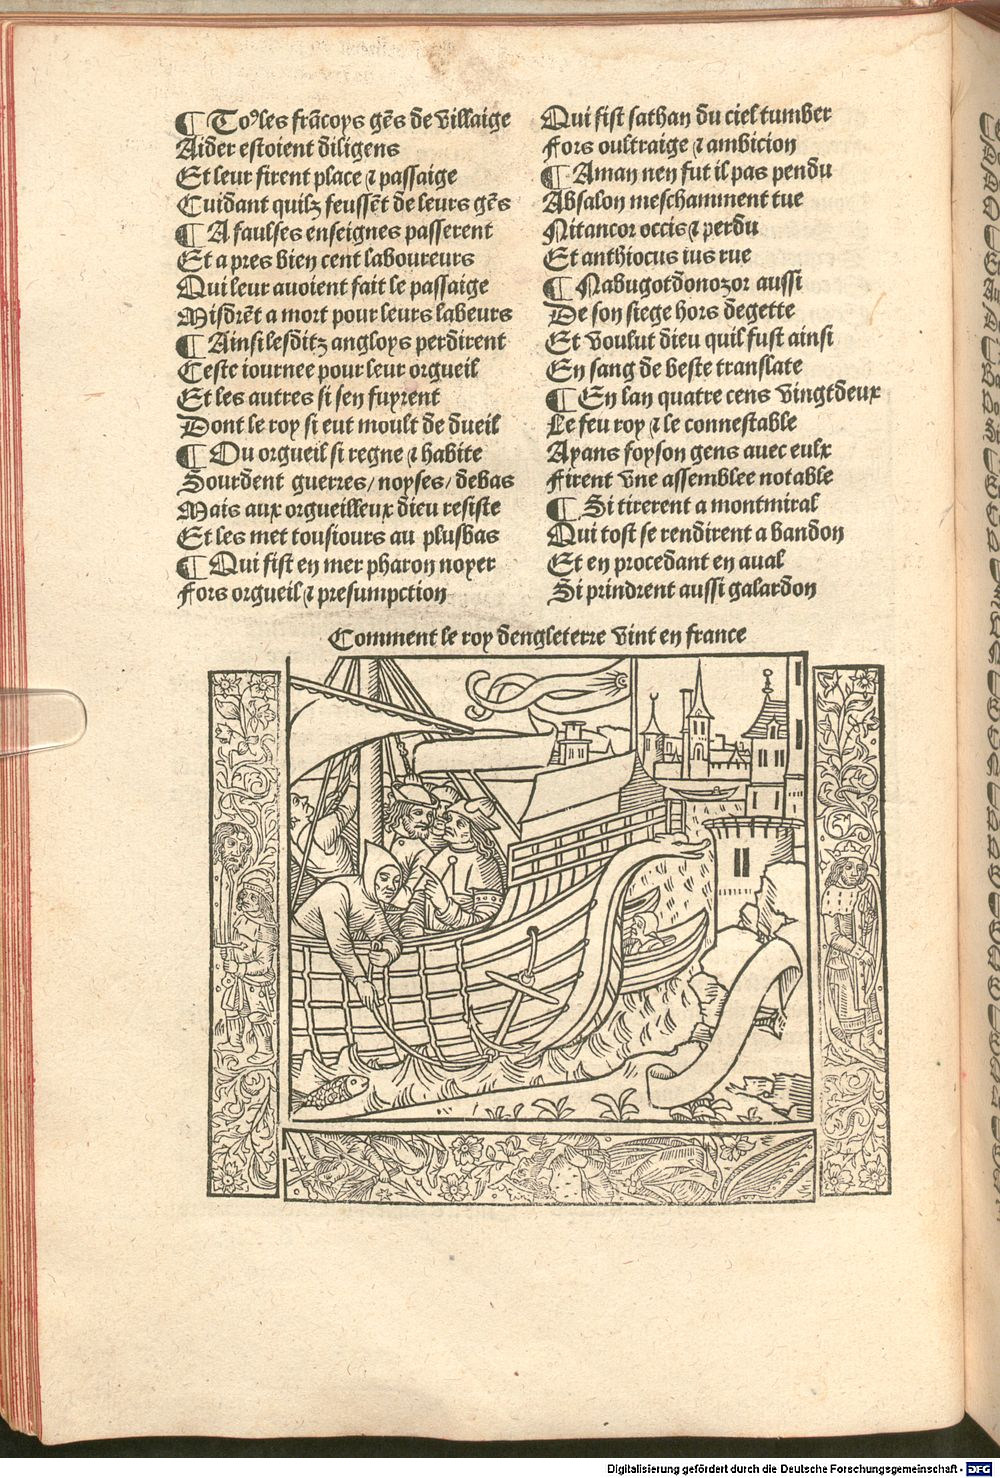 ¶ Toꝰ les frãcoys gẽs de villaige
Aider estoient diligens
Et leur firent place ⁊ passaige
Cuidant quilz feussẽt de leurs gẽs
¶ A faulses enseignes passerent
Et a pres bien cent laboureurs
Qui leur auoient fait le passaige
Misdrẽt a mort pour leurs labeurs
¶ Ainsi lesditz angloys perdirent
Ceste iournee pour leur orgueil
Et les autres si sen fuyrent
Dont le roy si eut moult de dueil
¶ Ou orgueil si regne ⁊ habite
Sourdent guerres/ noyses/ debas
Mais aux orgueilleux dieu resiste
Et les met tousiours au plusbas
¶ Qui fist en mer pharon noyer
Fors orgueil ⁊ presumpction
Qui fist sathan du ciel tumber
Fors oultraige ⁊ ambicion
¶ Aman nen fut il pas pendu
Absalon meschamment tue
Nitancor occis ⁊ perdu
Et anthiocus ius rue
¶ Nabugotdonozor aussi
De son siege hors degette
Et voulut dieu quil fust ainsi
En sang de beste translate
¶ En lan quatre cens vingtdeux
Le feu roy ⁊ le connestable
Ayans foyson gens auec eulx
Firent vne assemblee notable
¶ Si tirerent a montmiral
Qui tost se rendirent a bandon
Et en procedant en aual
Si prindrent aussi galardon
Comment le roy dengleterre vint en france
Digitalisierung gefördert durch die Deutsche Forschungsgemeinschaft - DFG